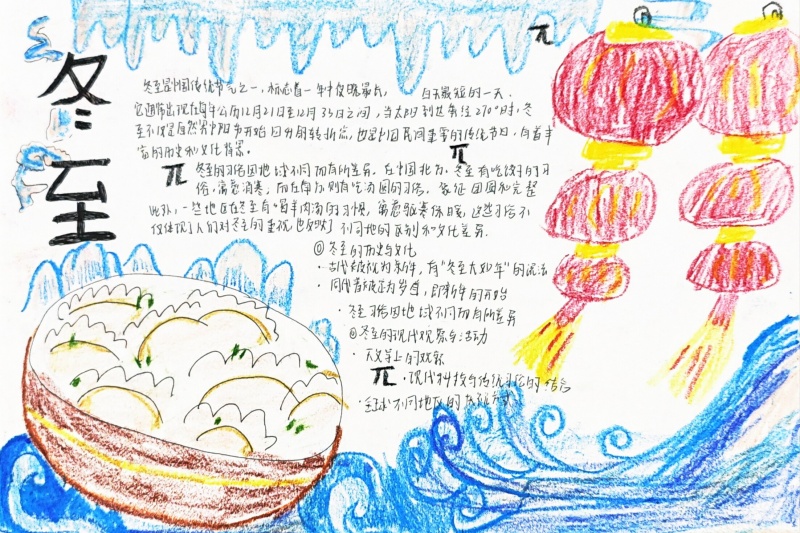 冬至
冬至是中国传统节气之一，标志着一年中夜晚最长， 白天最短的一天．
它通常出现在每年公历12月21日至12月 日之间，当太阳到达黄经270°时，冬
至不仅是自然界阴阳开始 的转折点，也是中国民间重要的传统节日，有着丰
富的历史和文化背景．
冬至的习俗因地域不同而有所差异．在中国北方，冬至有吃饺子的习
俗，寓意消寒，而在南方则有吃汤圆的习俗，象征团圆和完整
此外，一些地区在冬至有喝羊肉汤的习惯，寓意驱寒保暖，这些习俗不
仅体现了人们对冬至的重视，也反映了不同地的区别和文化差异．
冬至的历史与文化
·古代 ，有“冬至大如年”的说法
· ，即新年的开始
·冬至习俗因地域不同而有所差异
冬至的现代观察与活动
·天文学上的观察
·现代科技与传统习俗的结合
·全球不同地区的